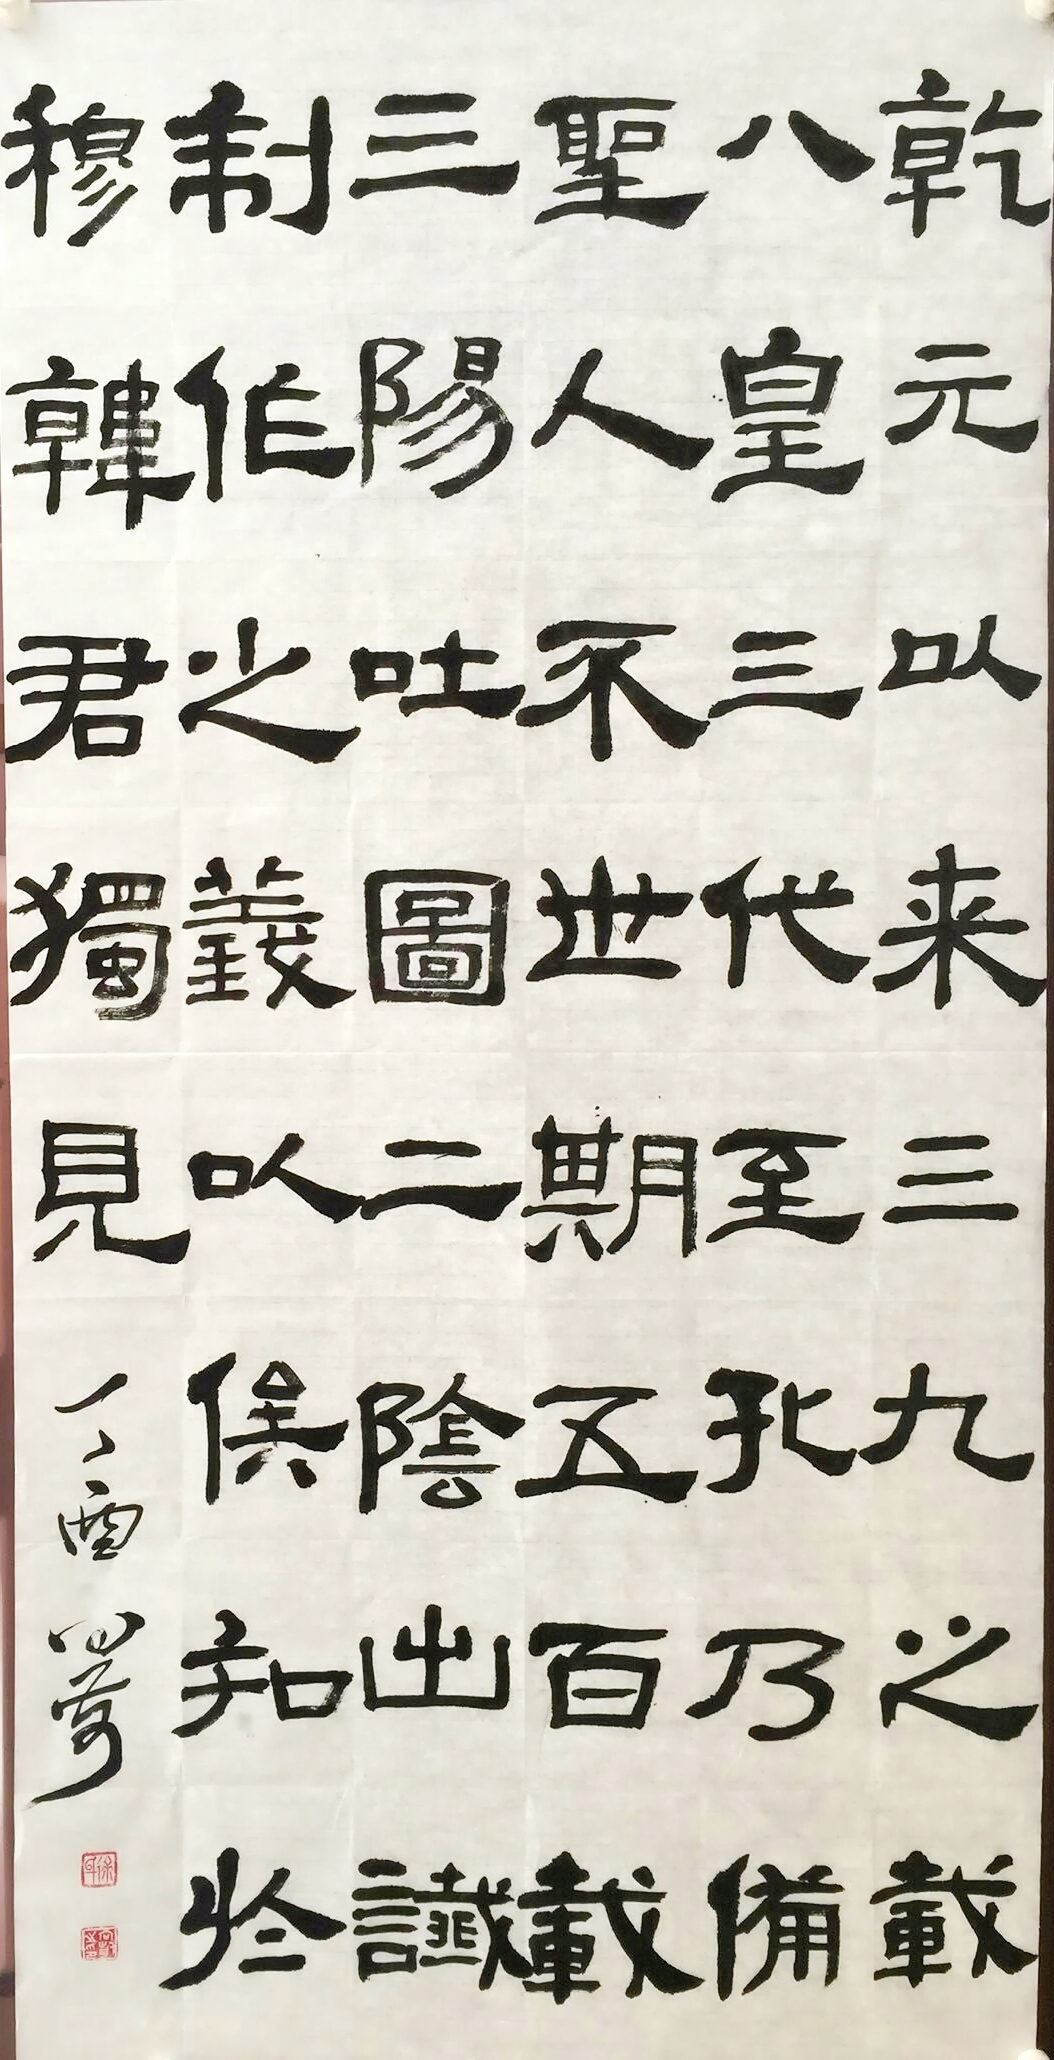 乾元以来三九之載
八皇三代至孔乃備
聖人不世期五百載
三陽吐圖二陰出讖
制作之義以俟知於
穆韓君獨見
丁酉